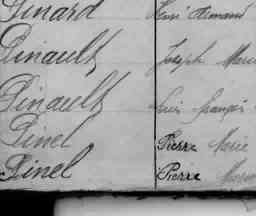 Pinard Henri Armand
Pinault Joseph Marie
Pinault Louis François
Pinel Pierre Marie
Pinel Pierre